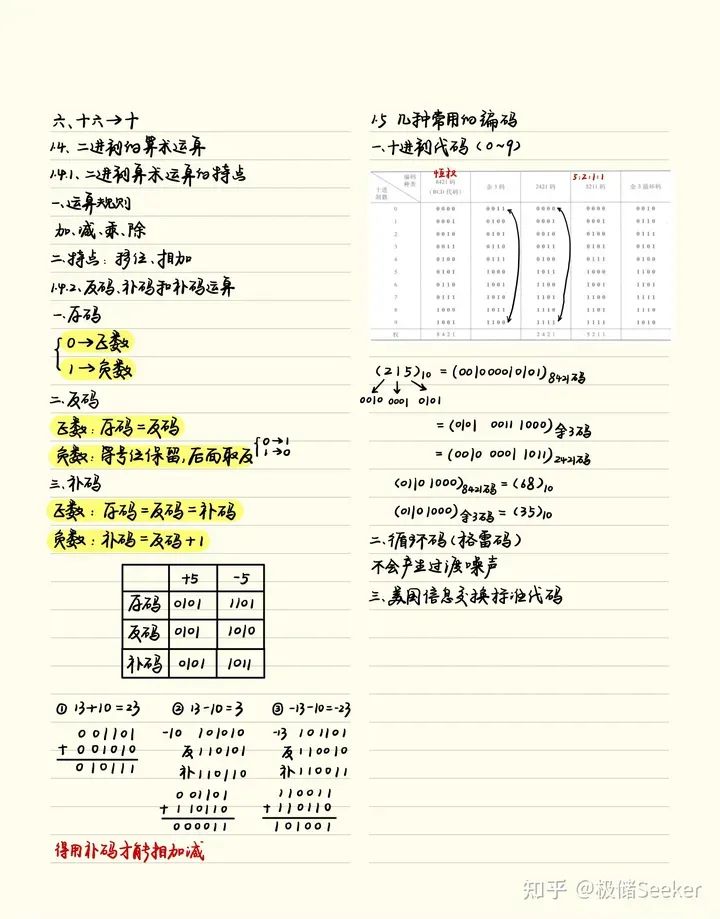 六、十六→十
1.4、二进制的算术运算
1.4.1、二进制算术运算的特点
一、运算规则
加、减、乘、除
二、特点：移位、相加
1.4.2、反码、补码和补码运算
一、原码
0→正数
1→负数
二、反码
正数：原码=反码
负数：符号位保留,后面取反 0→1
1→0
三、补码
正数：原码=反码=补码
负数：补码=反码+1
+5 -5
原码 0101 1101
反码 0101 1010
补码 0101 1011
① 13+10=23 ② 13-10=3 ③ -13-10=-23
001101
+ 001010
010111
-10 101010
反 110101
补 110110
001101
+ 110110
000011
-13 101101
反 110010
补 110011
110011
+ 110110
101001
得用补码才能相加减
1.5 几种常用的编码
一、十进制代码（0~9）
恒权 5:2:1:1
编码种类 十进制数 8421码(BCD代码) 余3码 2421码 5211码 余3循环码
0 0000 0011 0000 0000 0010
1 0001 0100 0001 0001 0110
2 0010 0101 0010 0100 0111
3 0011 0110 0011 0101 0101
4 0100 0111 0100 0111 0100
5 0101 1000 1011 1000 1100
6 0110 1001 1100 1001 1101
7 0111 1010 1101 1100 1111
8 1000 1011 1110 1101 1110
9 1001 1100 1111 1111 1010
权 8421 2421 5211
(215)10 = (001000010101)8421码
0010 0001 0101
= (0101 0011 1000)余3码
= (0010 0001 1011)2421码
(0110 1000)8421码 = (68)10
(0110 1000)余3码 = (35)10
二、循环码(格雷码)
不会产生过渡噪声
三、美国信息交换标准代码
知乎 @极储Seeker